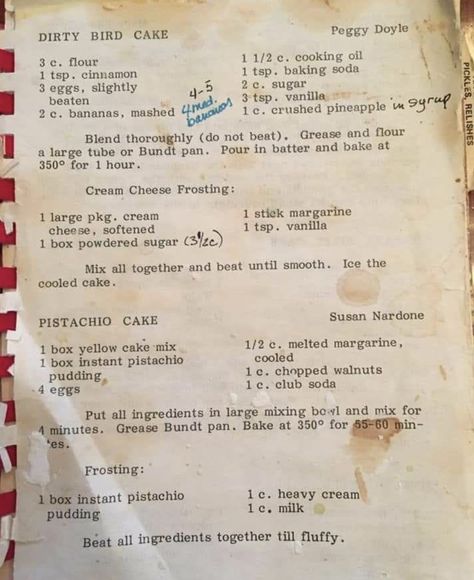 DIRTY BIRD CAKE Peggy Doyle
3 c. flour 1 1/2 c. cooking oil
1 tsp. cinnamon 1 tsp. baking soda
3 eggs, slightly 2 c. sugar
beaten 4-5 3 tsp. vanilla
2 c. bananas, mashed 4 med. bananas 1 c. crushed pineapple in syrup
Blend thoroughly (do not beat). Grease and flour
a large tube or Bundt pan. Pour in batter and bake at
350° for 1 hour.
Cream Cheese Frosting:
1 large pkg. cream 1 stick margarine
cheese, softened 1 tsp. vanilla
1 box powdered sugar (3½c)
Mix all together and beat until smooth. Ice the
cooled cake.
PISTACHIO CAKE Susan Nardone
1 box yellow cake mix 1/2 c. melted margarine,
1 box instant pistachio cooled
pudding 1 c. chopped walnuts
4 eggs 1 c. club soda
Put all ingredients in large mixing bowl and mix for
4 minutes. Grease Bundt pan. Bake at 350° for 55-60 min-
utes.
Frosting:
1 box instant pistachio 1 c. heavy cream
pudding 1 c. milk
Beat all ingredients together till fluffy.
PICKLES, RELISHES